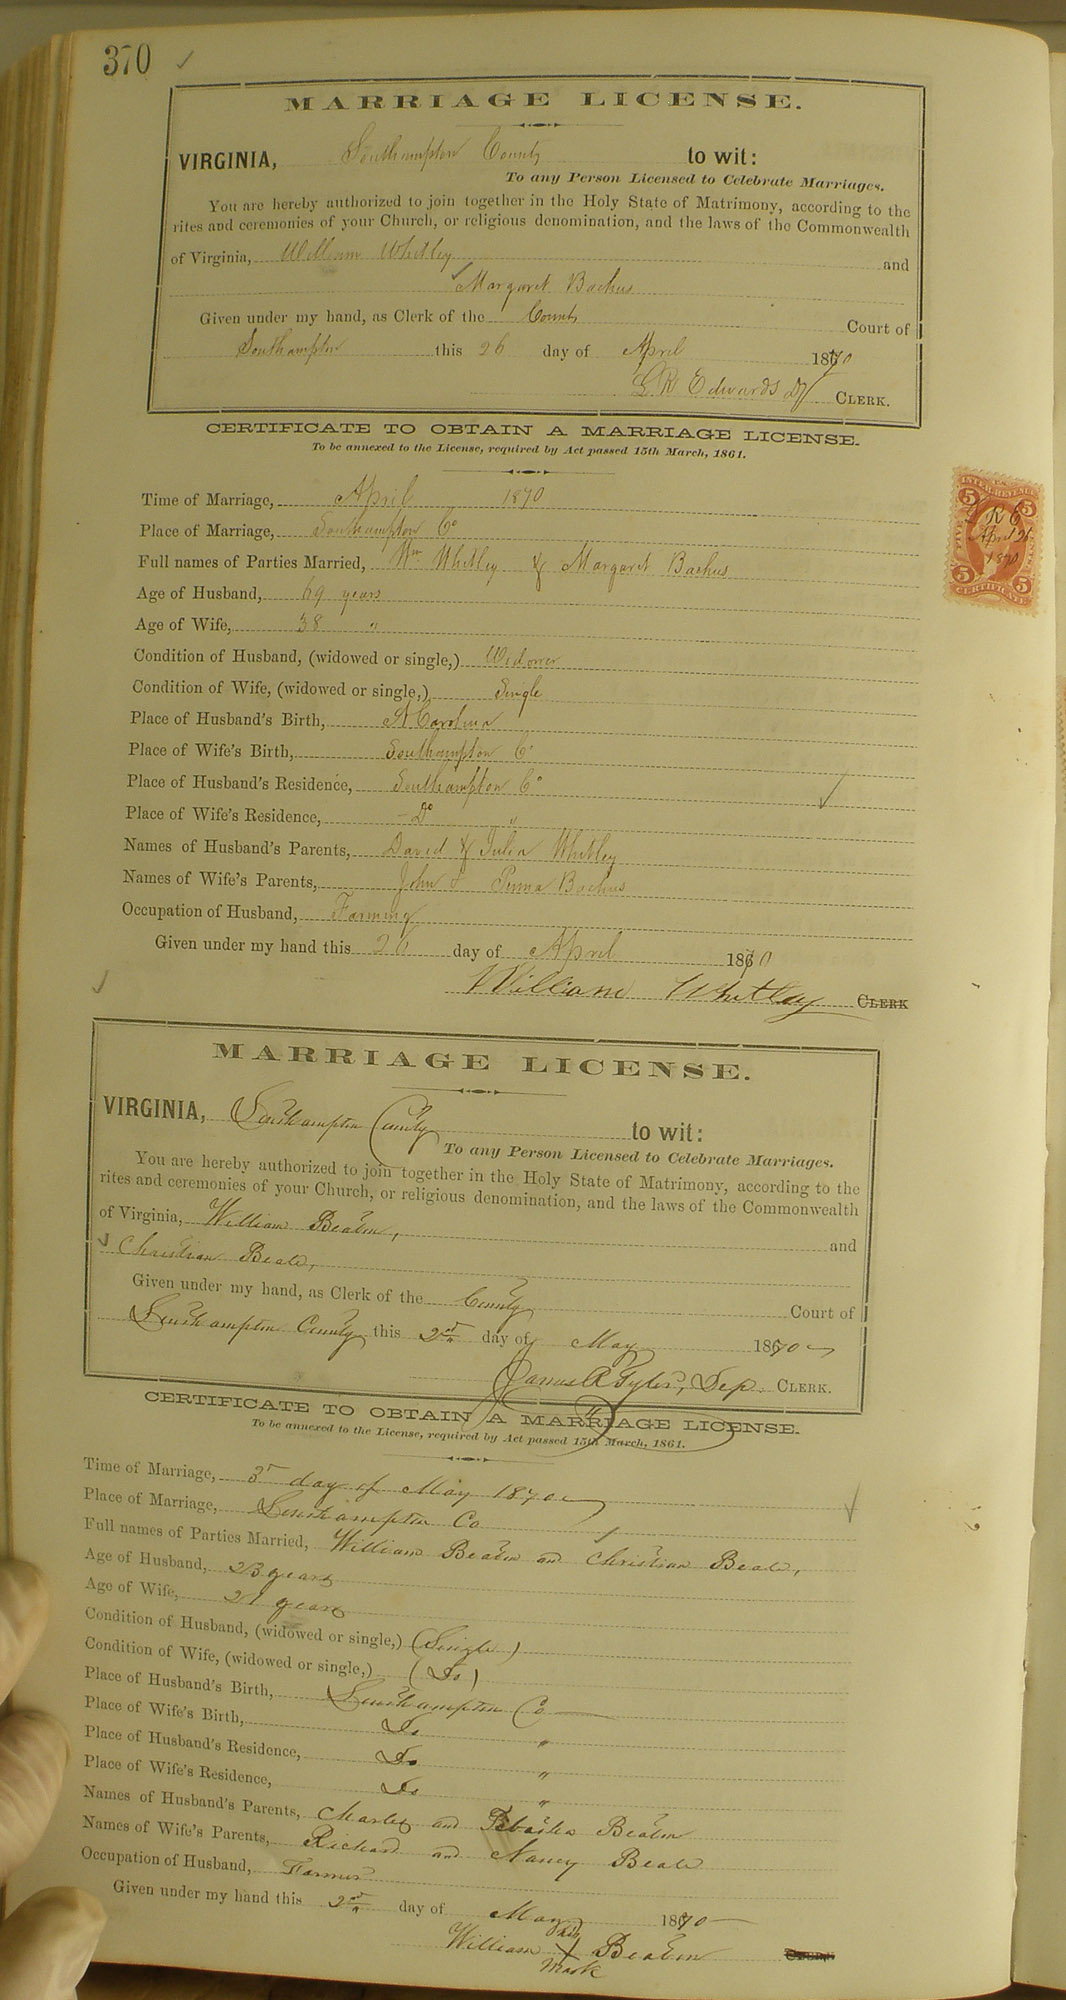 370
MARRIAGE LICENSE.
VIRGINIA, Southampton County to wit:
To any Person Licensed to Celebrate Marriages.
You are hereby authorized to join together in the Holy State of Matrimony, according to the
rites and ceremonies of your Church, or religious denomination, and the laws of the Commonwealth
of Virginia, William Whitley and
Margaret Backus
Given under my hand, as Clerk of the County Court of
Southampton this 26 day of April 1870
L. R. Edwards Dy CLERK.
CERTIFICATE TO OBTAIN A MARRIAGE LICENSE.
To be annexed to the License, required by Act passed 15th March, 1861.
Time of Marriage, April 1870
Place of Marriage, Southampton Co
Full names of Parties Married, Wm Whitley & Margaret Backus
Age of Husband, 69 years
Age of Wife, 38 "
Condition of Husband, (widowed or single,) Widower
Condition of Wife, (widowed or single,) Single
Place of Husband's Birth, N. Carolina
Place of Wife's Birth, Southampton Co
Place of Husband's Residence, Southampton Co
Place of Wife's Residence, Do "
Names of Husband's Parents, David & Julia Whitley
Names of Wife's Parents, John & Backus
Occupation of Husband, Farming
Given under my hand this 26 day of April 1870
William Whitley CLERK
INTER. REVENUE
5 5
L R E
April 26
1870
FIVE CENTS
5 5
CERTIFICATE
MARRIAGE LICENSE.
VIRGINIA, Southampton County to wit:
To any Person Licensed to Celebrate Marriages.
You are hereby authorized to join together in the Holy State of Matrimony, according to the
rites and ceremonies of your Church, or religious denomination, and the laws of the Commonwealth
of Virginia, William Beaton, and
Christian Beale,
Given under my hand, as Clerk of the County Court of
Southampton County this 2nd day of May 1870
James R Tyler, Dep. CLERK.
CERTIFICATE TO OBTAIN A MARRIAGE LICENSE.
To be annexed to the License, required by Act passed 15th March, 1861.
Time of Marriage, 3r day of May 1870
Place of Marriage, Southampton Co
Full names of Parties Married, William Beaton and Christian Beale,
Age of Husband, 23 years
Age of Wife, 21 years
Condition of Husband, (widowed or single,) (Single)
Condition of Wife, (widowed or single,) (Do)
Place of Husband's Birth, Southampton Co
Place of Wife's Birth, Do "
Place of Husband's Residence, Do "
Place of Wife's Residence, Do "
Names of Husband's Parents, Charles and Beaton
Names of Wife's Parents, Richard and Nancy Beale
Occupation of Husband, Farmer
Given under my hand this 2nd day of May 1870
his
William X Beaton
mark